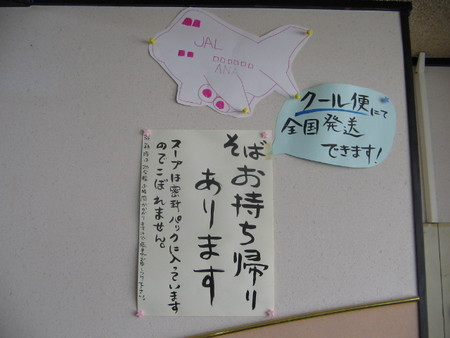 JAL
ANA
クール便にて
全国発送
できます!
そばお持ち帰り
あります
スープは密封パックに入っています
のでこぼれません。